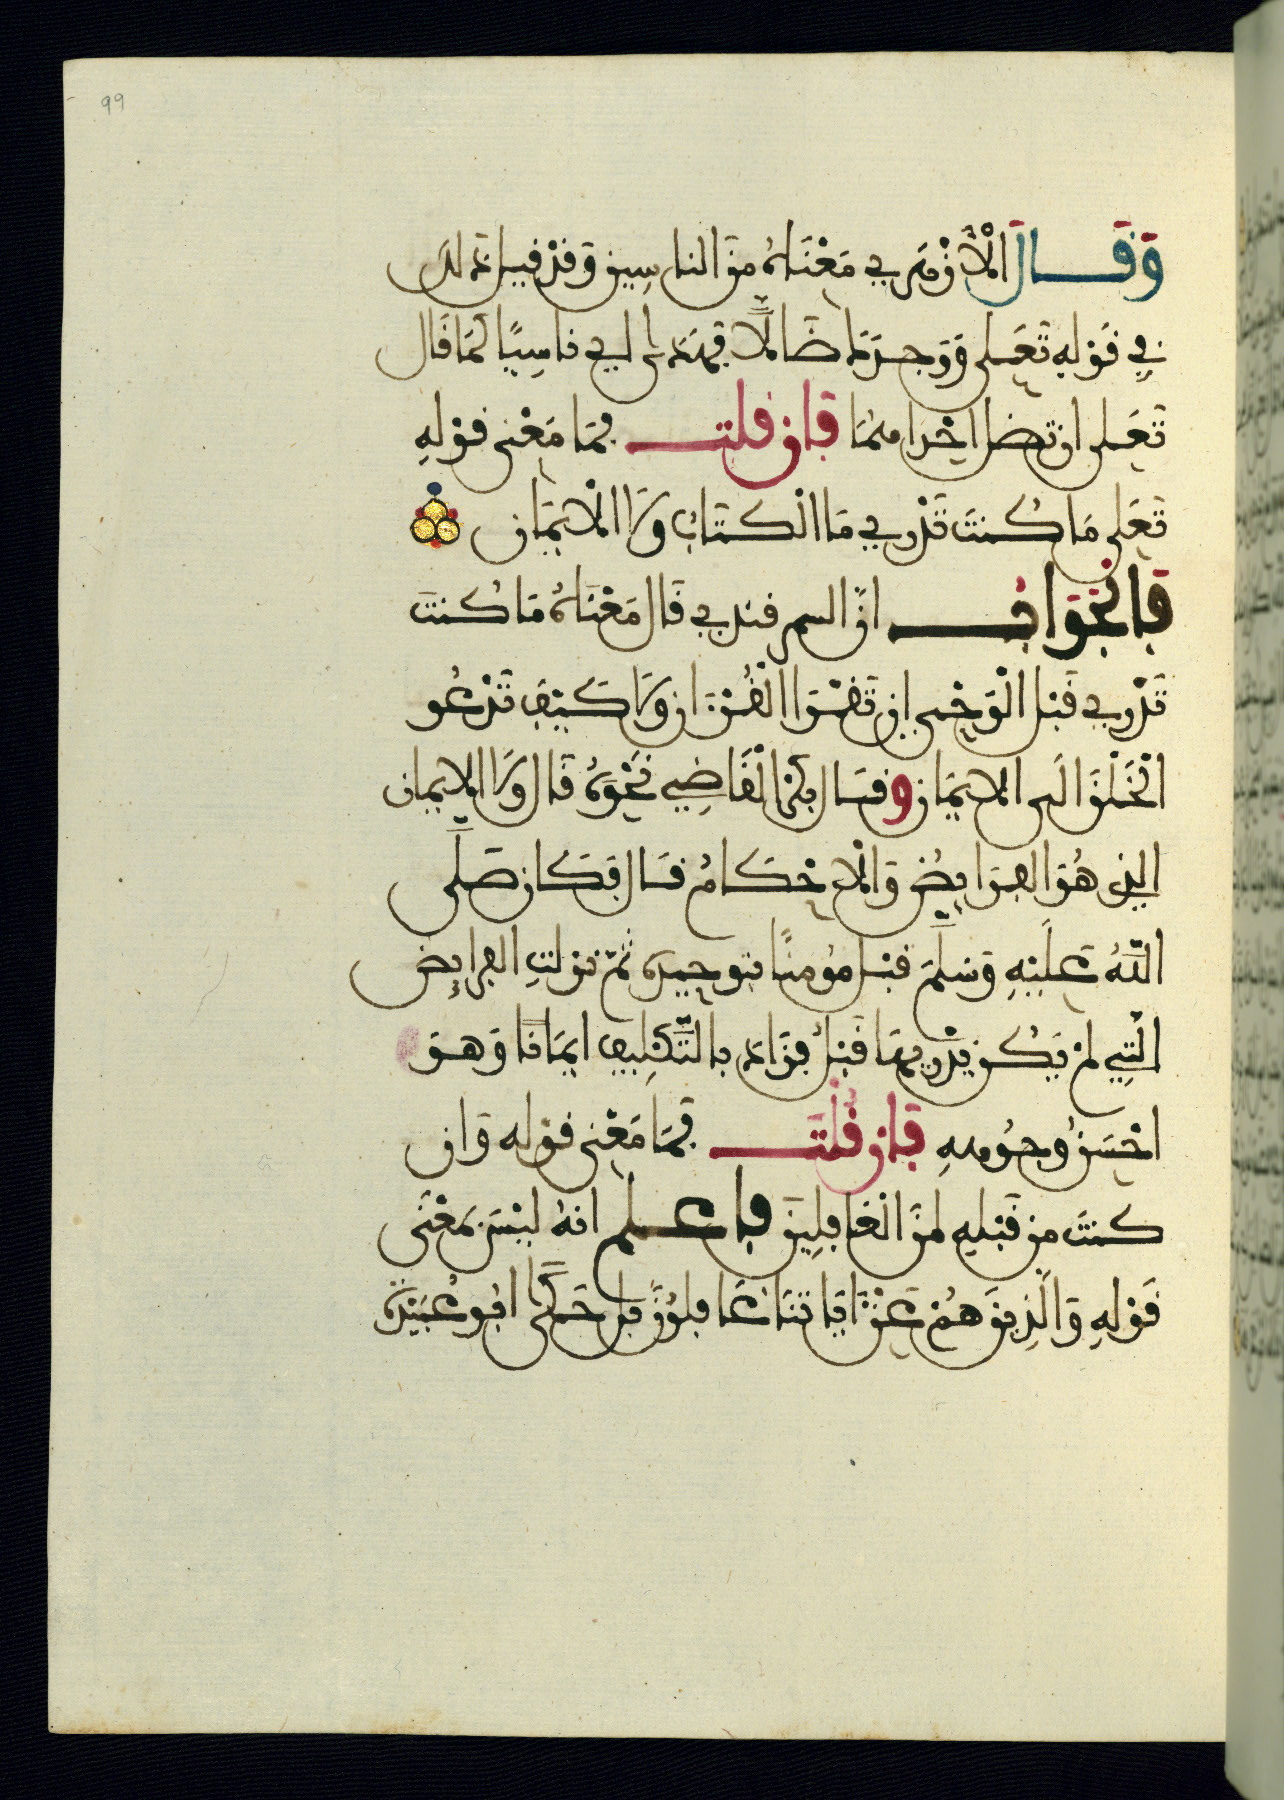 99
وَقَــالَ الْأَزْهَرِي مَعْنَاهُ مِنَ النَّاسِينَ وَقَدْ قِيلَ ذَلِكَ
فِي قَوْلِهِ تَعَلَى وَوَجَدَكَ ضَالًّا فَهَدَى اي نَاسِيًا كَمَا قَالَ
تَعَلَى ان تضل احْدَاهُمَا فَإن قلت فَمَا مَعْنى قَوْلِهِ
تَعَلَى مَا كُنتَ تَدْرِي مَا الْكتَابُ وَلَا الْايمَان
فَالْجَوَابُ انَّ السمرقندي قَال مَعْنَاهُ مَا كُنتَ
تَدْرِي قَبْل الْوَحْيِ ان تَقْرَا الْقُرْءَان وَلَا كَيْفَ تَدْعُو
الْخَلْقَ الَى الايمَان وقَال بَكْر الْقَاضِي نَحْوَهُ قَال وَلَا الايمان
الذي هُوَ الفرَايضُ وَالْاحْكَامُ قَال فَكَان صَلَّى
اللَّهُ عَلَيْهِ وَسَلَّمَ قبْل مُومنًا بتوحيده ثُمَّ نزلتِ الفرايضُ
الَّتِي لمْ يَكُن يدْريهَا قَبْلُ فزَاد بالتَّكْلِيف ايمَانًا وَهوَ
احْسَنُ وجُوههِ فَإن قُلْتَ فَمَا مَعْنى قوْله وَان
كنتَ من قَبْلهِ لمنَ الْغَافِلِينَ فاعــلم انهُ ليْسَ بمَعْنَى
قَوْلهِ وَالَّذِينَ هُمْ عَنْ ءايَاتنَا غَافلُونَ بل حَكَى ابُو عُبَيْدَة